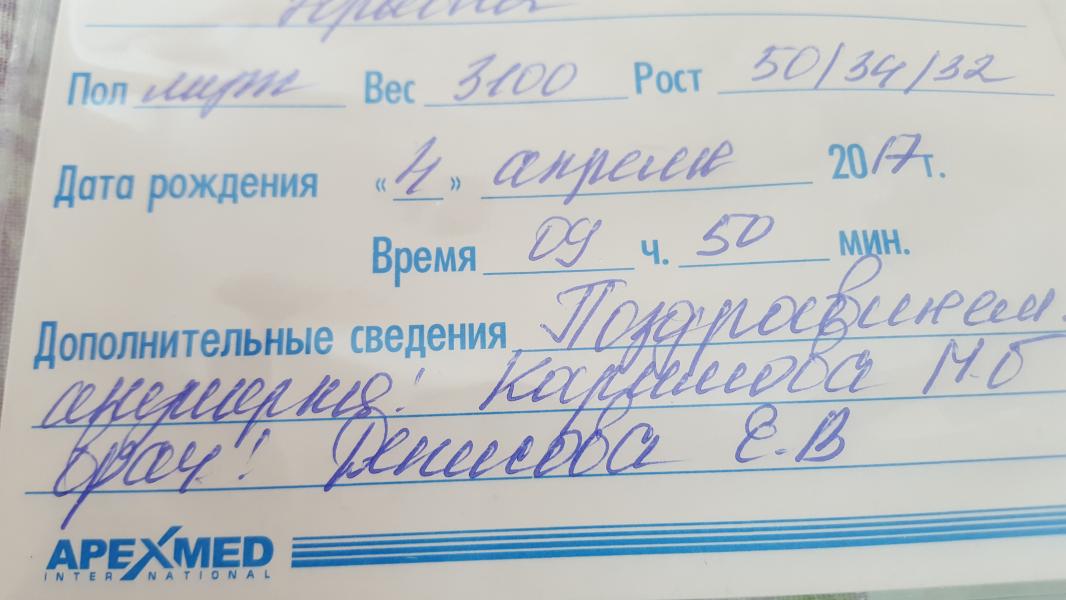 Пол муж Вес 3100 Рост 50/34/32
Дата рождения «4» апреля 2017г.
Время 09 ч. 50 мин.
Дополнительные сведения Поздравляем.
акушерка: Каримова М.б
врач: Денисова Е.В
APEXMED
INTERNATIONAL